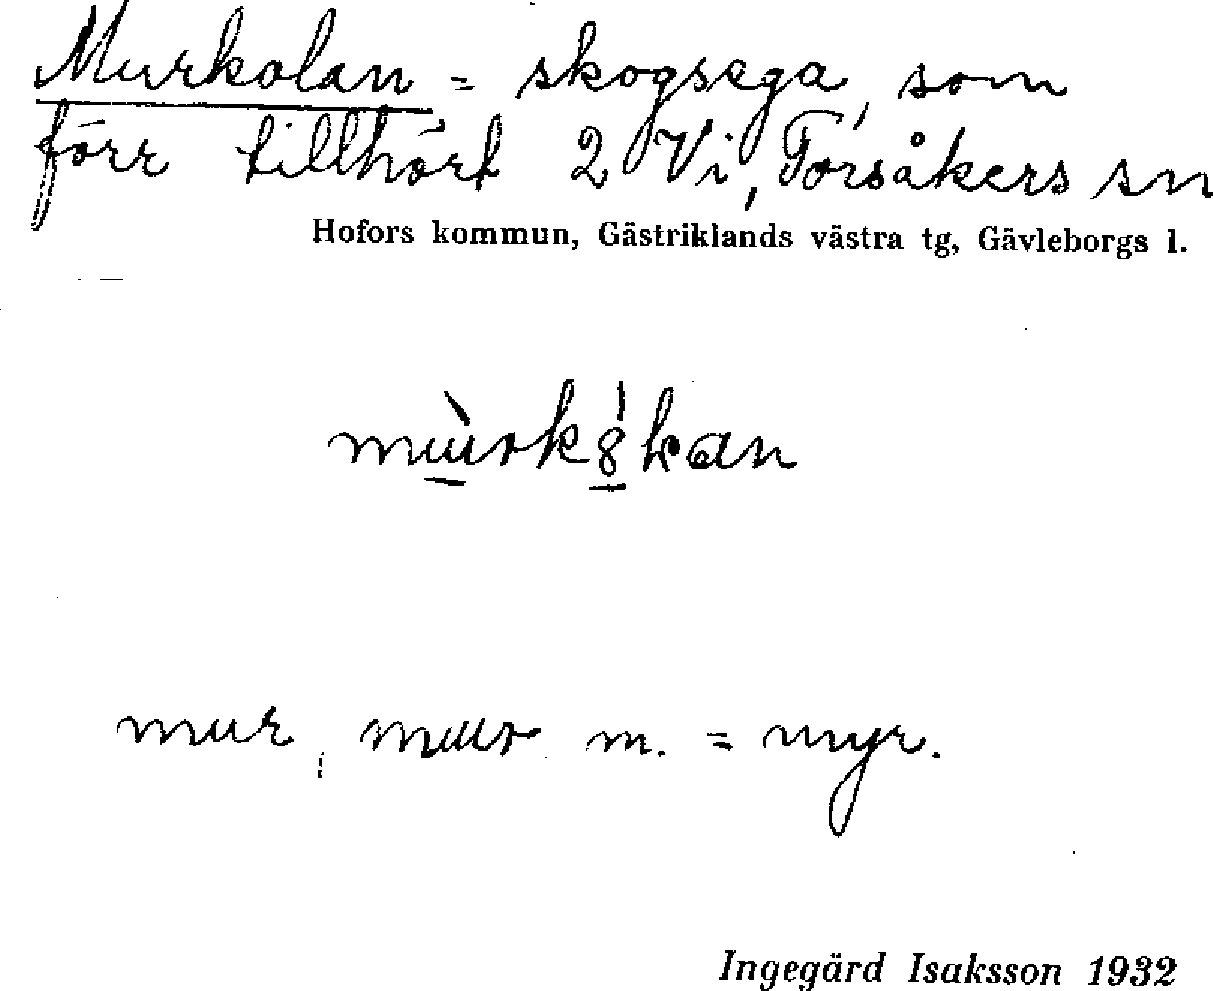 Murkolan = skogsega, som
förr tillhört 2 Vi, Torsåkers sn
Hofors kommun, Gästriklands västra tg, Gävleborgs l.
mur, mur m. = myr.
Ingegärd Isaksson 1932